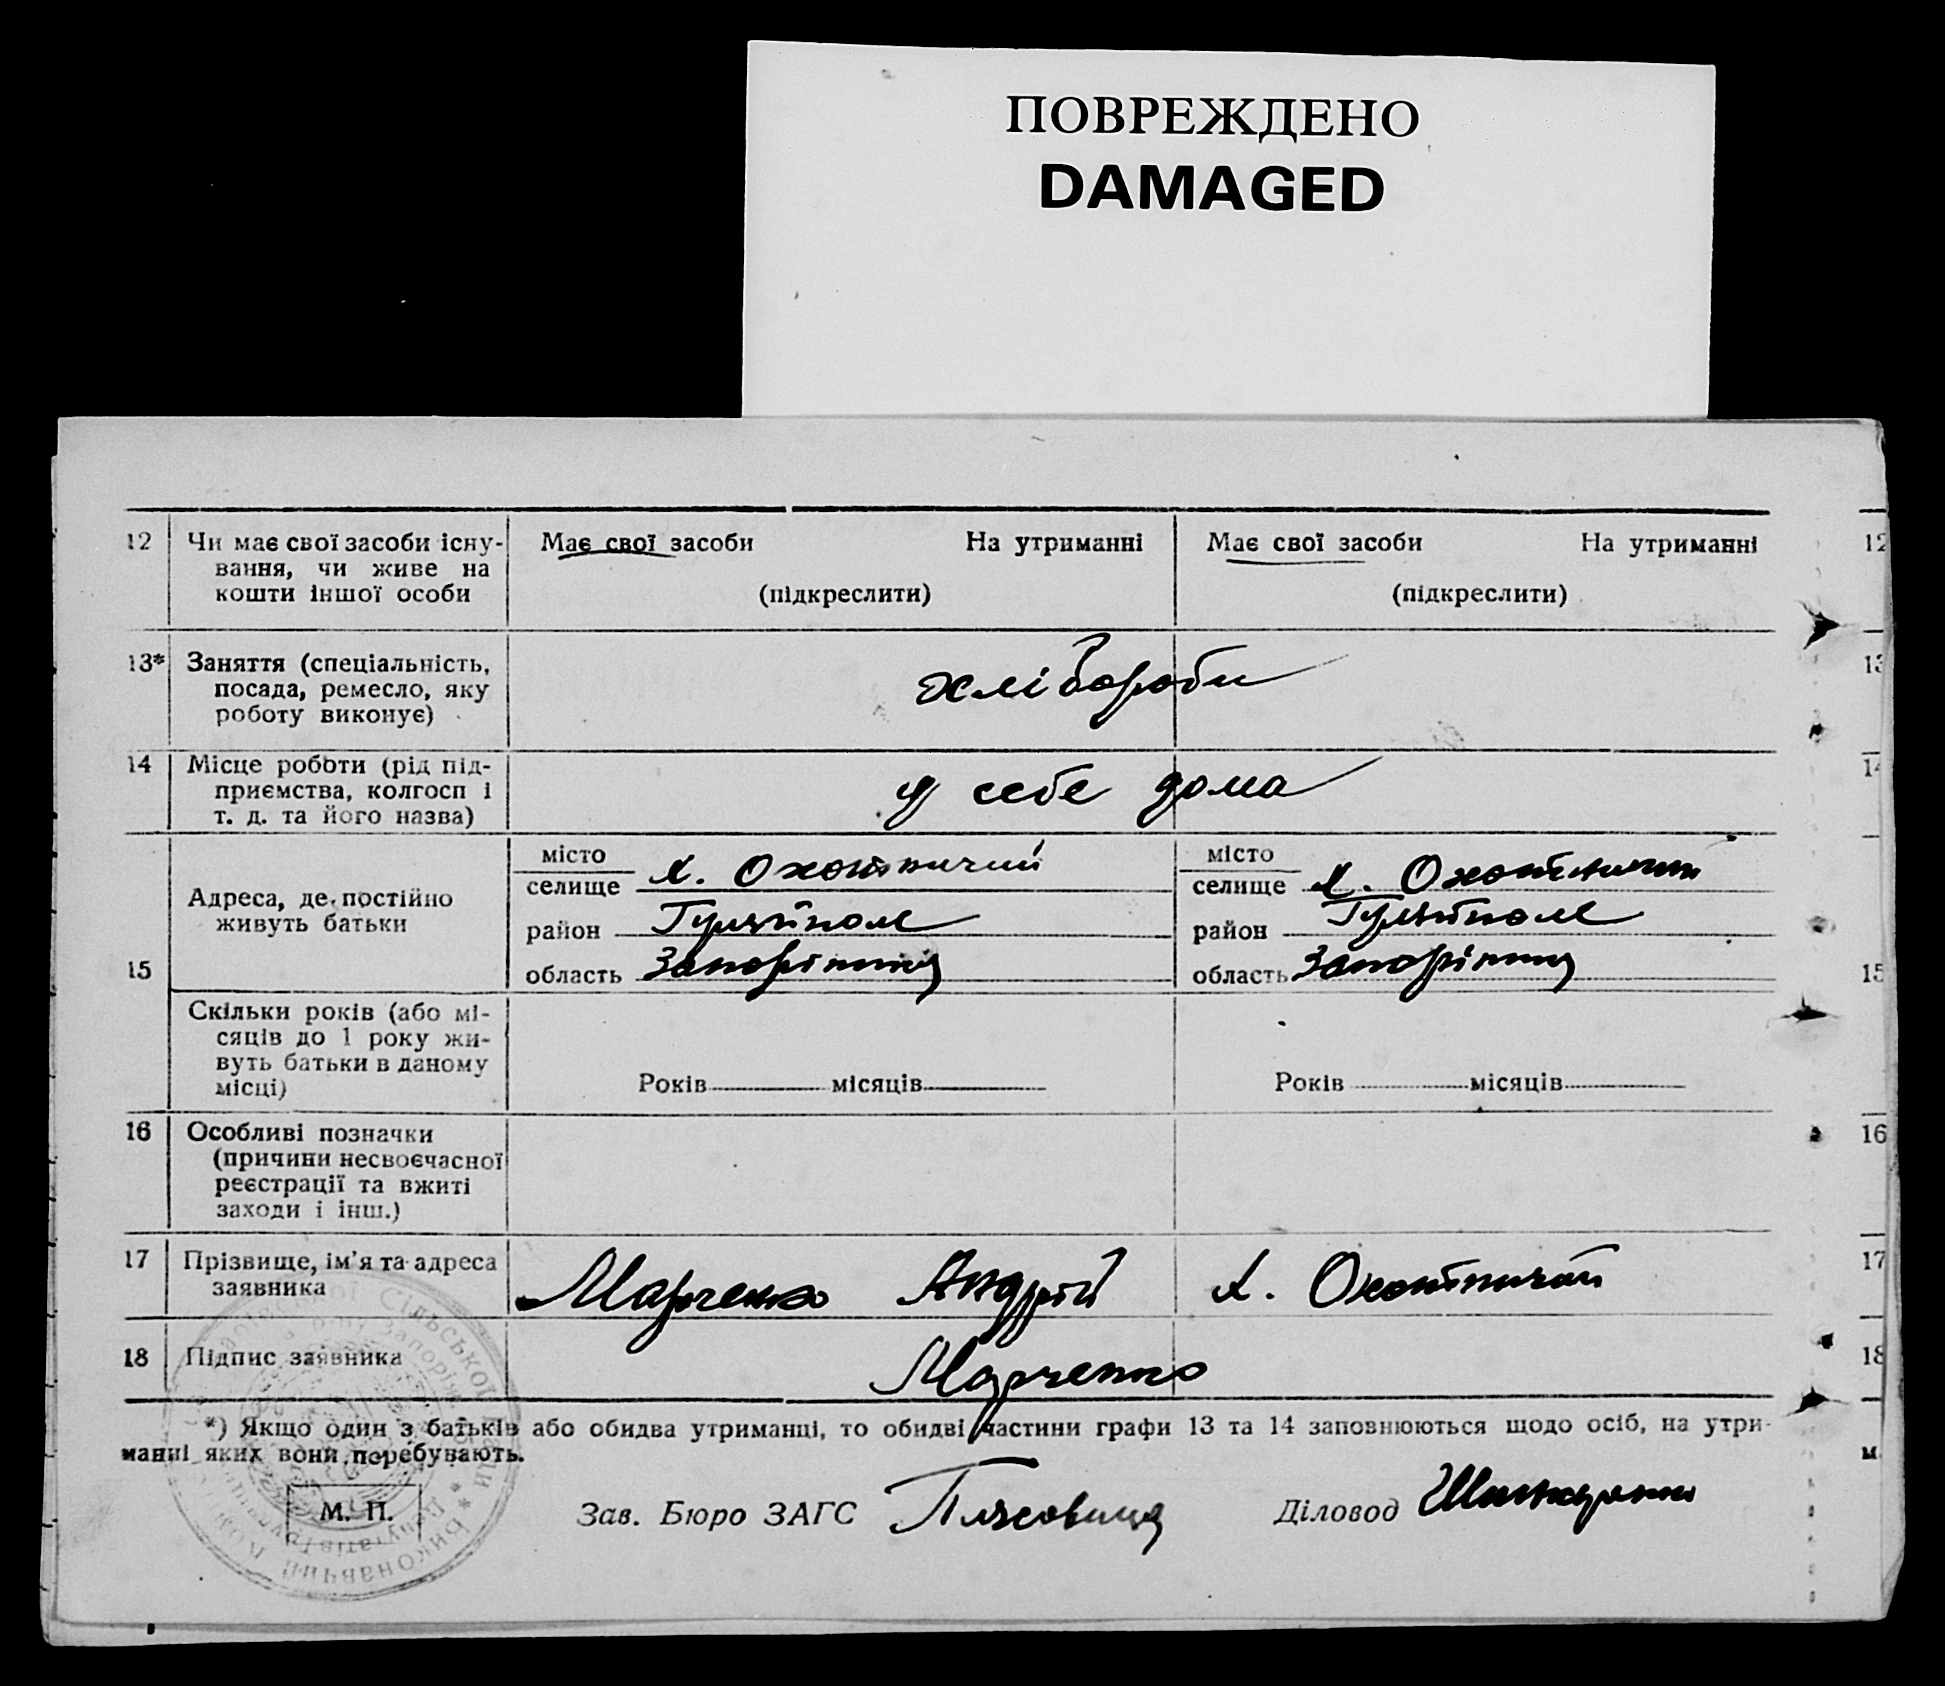 ПОВРЕЖДЕНО
DAMAGED
12 Чи має свої засоби існу- Має свої засоби На утриманні Має свої засоби На утриманні 12
вання, чи живе на
кошти іншої особи (підкреслити) (підкреслити)
13* Заняття (спеціальність, 13
посада, ремесло, яку хлібороби
роботу виконує)
14 Місце роботи (рід під- 14
приємства, колгосп і у себе дома
т. д. та його назва)
місто місто
селище х. Охотничий селище х. Охотничий
Адреса, де постійно
живуть батьки район Гуляйполе район Гуляйполе
15 область область 15
Скільки років (або мі-
сяців до 1 року жи-
вуть батьки в даному
місці) Років місяців Років місяців
16 Особливі позначки 16
(причини несвоєчасної
реєстрації та вжиті
заходи і інш.)
17 Прізвище, ім'я та адреса 17
заявника Марченко Андрій х. Охотничий
18 Підпис заявника Марченко 18
*) Якщо один з батьків або обидва утриманці, то обидві частини графи 13 та 14 заповнюються щодо осіб, на утри-
манні яких вони перебувають. м
М. П. Зав. Бюро ЗАГС Діловод